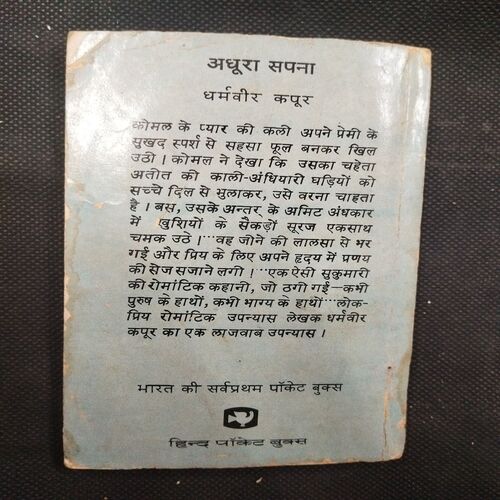 अधूरा सपना
धर्मवीर कपूर
कोमल के प्यार की कली अपने प्रेमी के
सुखद स्पर्श से सहसा फूल बनकर खिल
उठी । कोमल ने देखा कि उसका चहेता
अतीत की काली-अंधियारी घड़ियों को
सच्चे दिल से भुलाकर, उसे वरना चाहता
है । बस, उसके अन्तर के अमिट अंधकार
में खुशियों के सैकड़ों सूरज एकसाथ
चमक उठे ।…वह जीने की लालसा से भर
गई और प्रिय के लिए अपने हृदय में प्रणय
की सेज सजाने लगी ।…एक ऐसी सुकुमारी
की रोमांटिक कहानी, जो ठगी गई—कभी
पुरुष के हाथों, कभी भाग्य के हाथों…लोक-
प्रिय रोमांटिक उपन्यास लेखक धर्मवीर
कपूर का एक लाजवाब उपन्यास ।
भारत की सर्वप्रथम पॉकेट बुक्स
हिन्द पॉकेट बुक्स